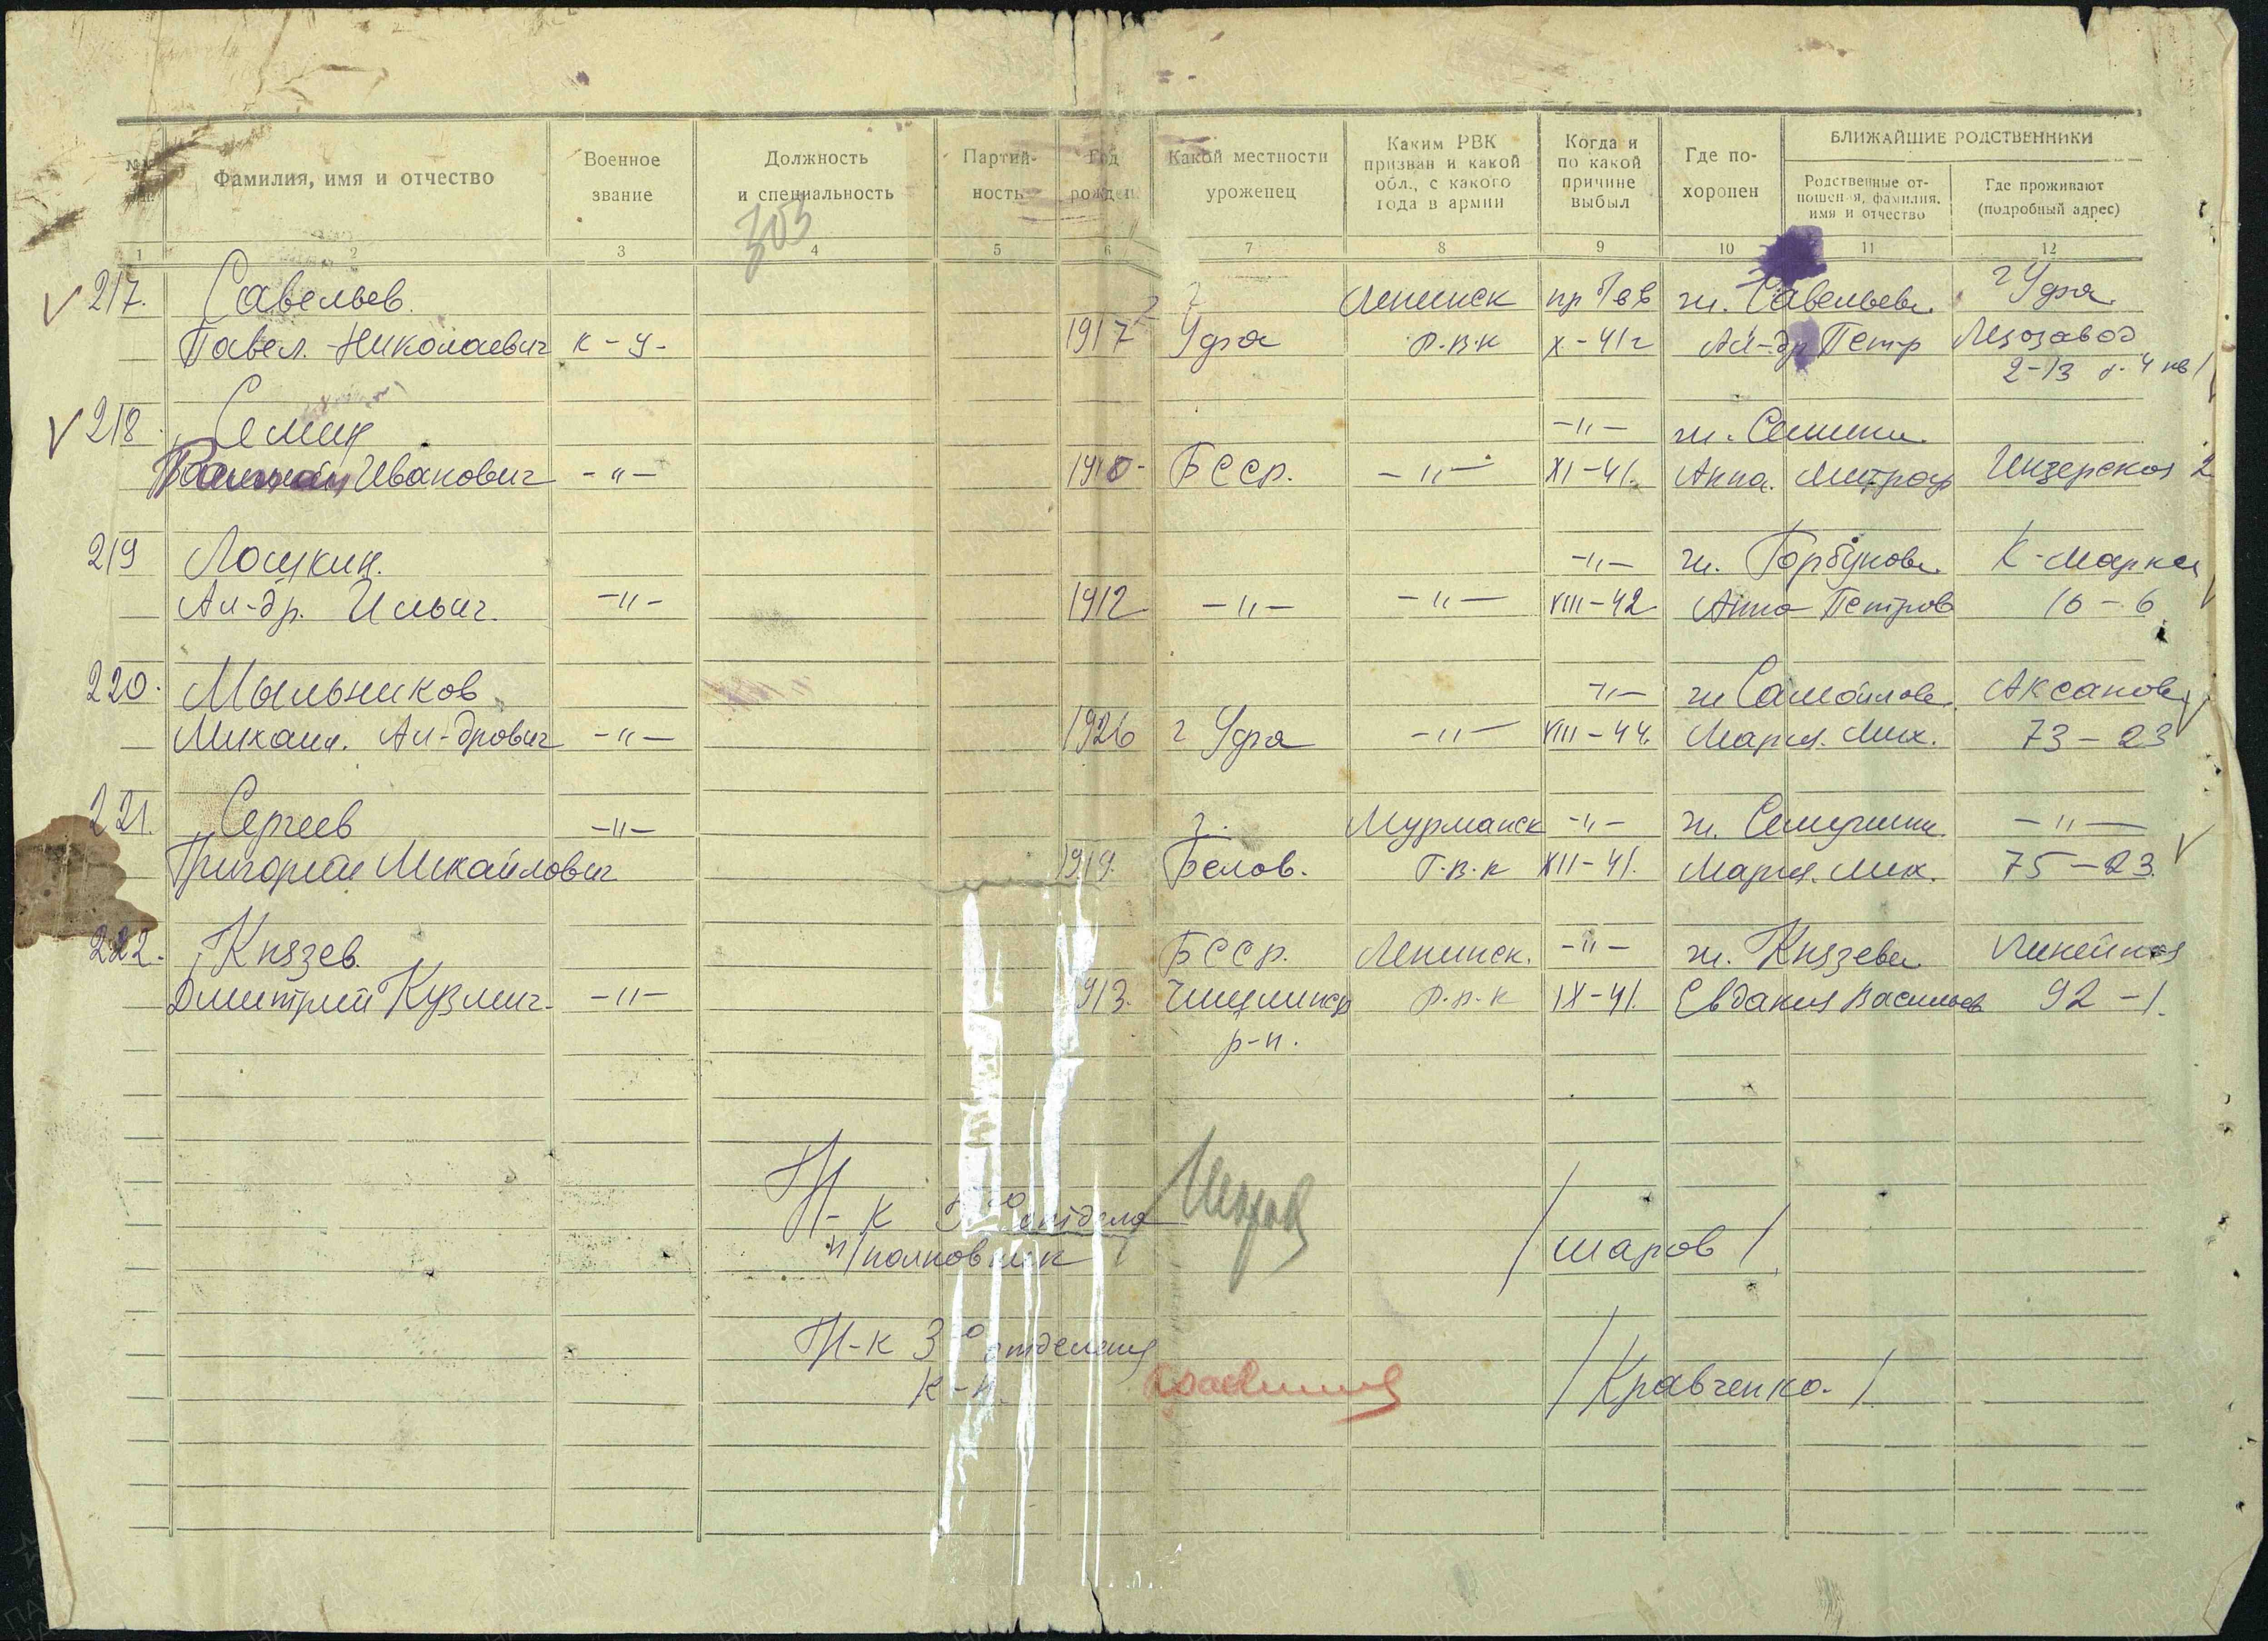 №№ Фамилия, имя и отчество Военное звание Должность и специальность Партий- ность Год рожден. Какой местности уроженец Каким РВК призван и какой обл., с какого года в армии Когда и по какой причине выбыл Где по- хоронен БЛИЖАЙШИЕ РОДСТВЕННИКИ
Родственные от- ношения, фамилия, имя и отчество Где проживают (подробный адрес)
303
1 2 3 4 5 6 7 8 9 10 11 12
217. Савельев. г Ленинск пр б/вв ж. Савельева г Уфа
Павел. Николаевич к-у- 1917 Уфа Р.В.К X-41г Ал-др Петр Лезозавод
2-13 4 кв
218. Семин -"- ж. Семина
Иванович -"- БССР. -"- XI-41. Анна. Митроф Инзерская 2
219 Лошкин. -"- ж. Горбунова К-Маркса
Ал-др. Ильич. -"- 1912 -"- -"- VIII-42 Анна Петров 16-6
220. Мыльников -"- ж Самойлова Аксакова
Михаил. Ал-дрович -"- 1926 г Уфа -"- VIII-44. Мария. Мих. 73-23
221. Сергеев -"- г. Мурманск -"- ж. -"-
Григорий Михайлович 1919. Белов. Г.В.К XII-41. Мария. Мих. 75-23.
222. Князев. БССР. Ленинск. -"- ж. Князева Линейная
Дмитрий Кузмич. -"- 913. Чишминск Р.В.К IX-41. Евдакия Васильев 92-1.
р-н.
Н-к отдела
п/полковник /шаров/
Н-к 3 го отделения
к-н. /Кравченко./